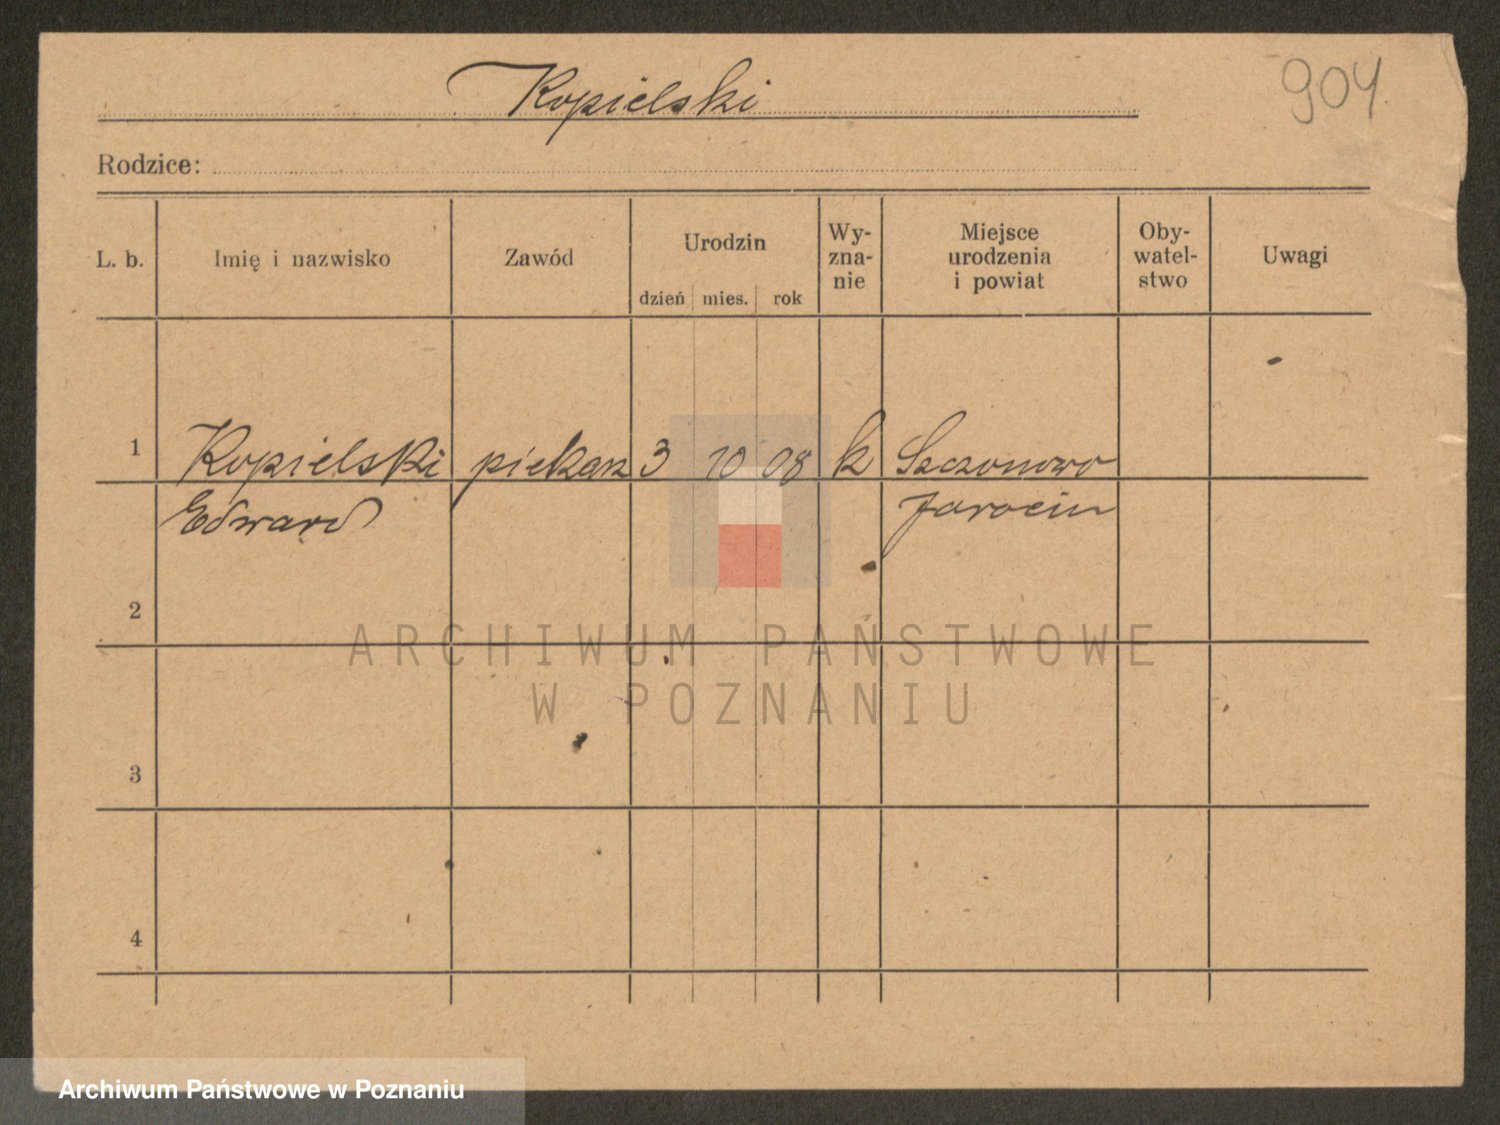 Kopielski
904
Rodzice:
L. b. Imię i nazwisko Zawód Urodzin dzień mies. rok Wy-zna-nie Miejsce urodzenia i powiat Oby-watel-stwo Uwagi
1 Kopielski piekarz 3 10 08 k Szczonowo
Edward Jarocin
2
ARCHIWUM PAŃSTWOWE
W POZNANIU
3
4
Archiwum Państwowe w Poznaniu